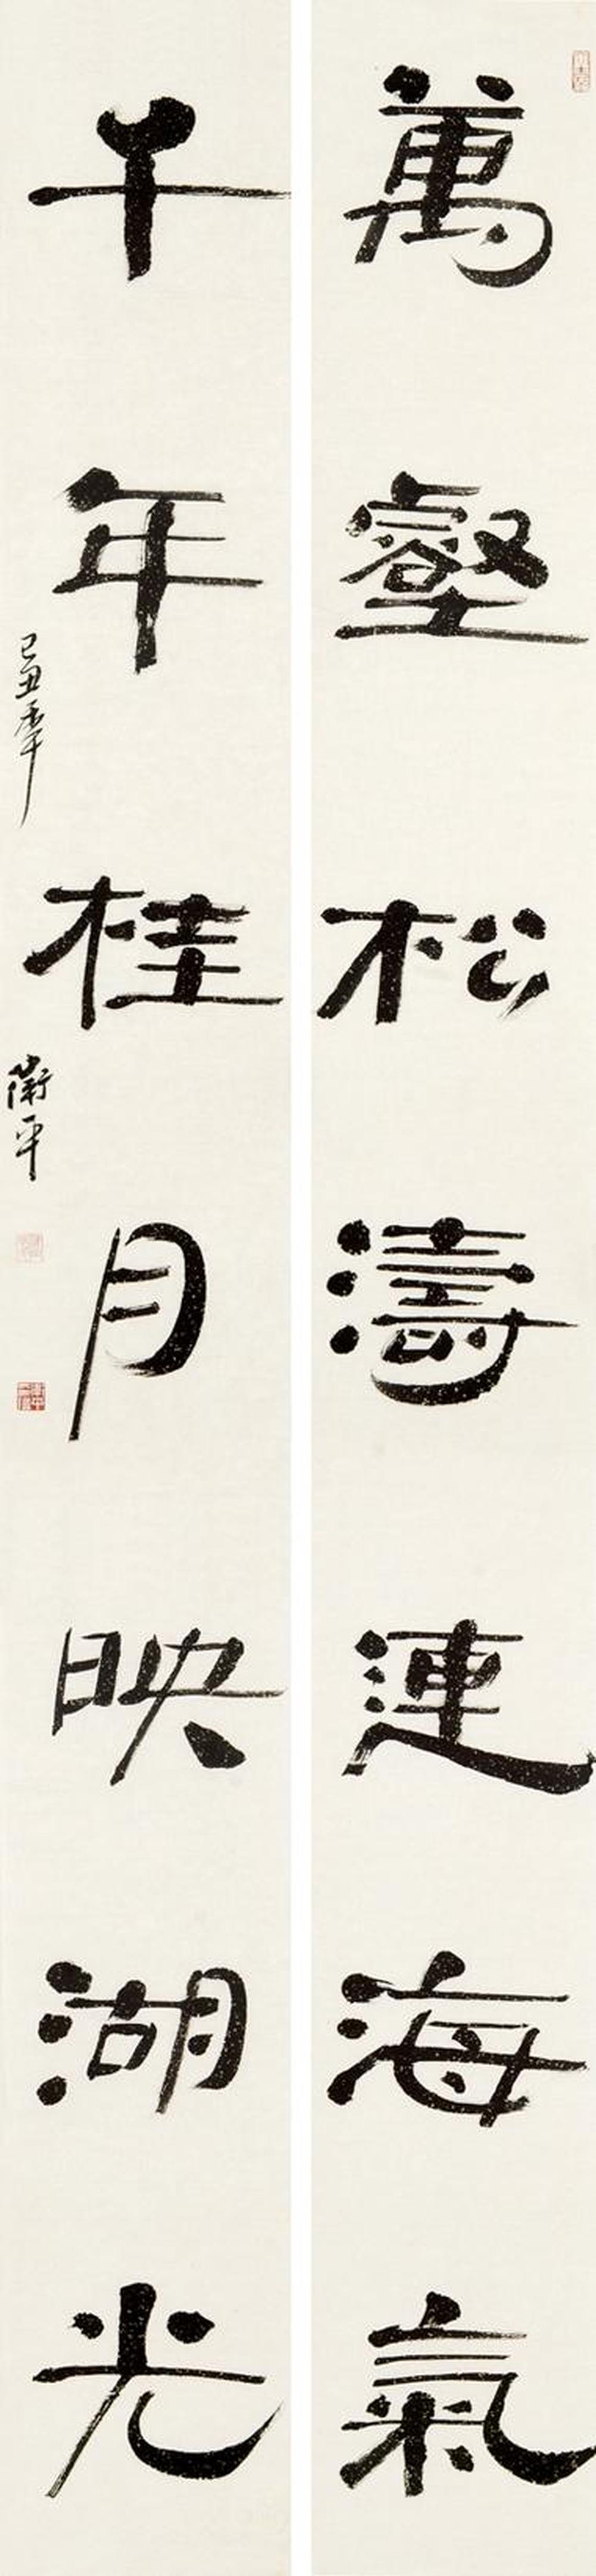 萬壑松濤連海氣
千年桂月映湖光
己丑季
衛平